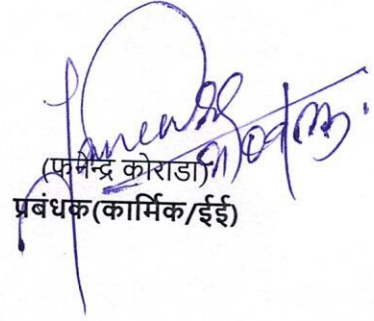 (फणीन्द्र कोराडा)
प्रबंधक(कार्मिक/ईई)